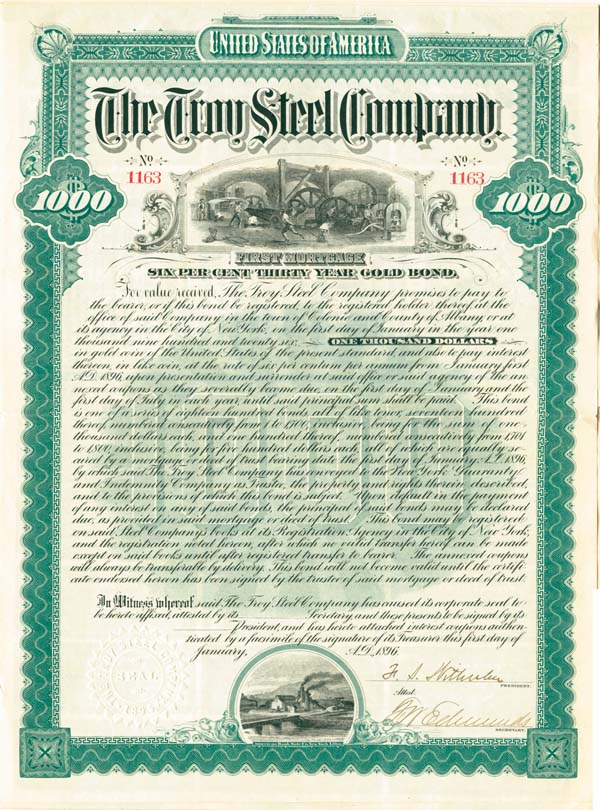 UNITED STATES OF AMERICA
The Troy Steel Company.
No No
1163 1163
$1000 $1000
FIRST MORTGAGE
SIX PER CENT THIRTY YEAR GOLD BOND,
For value received, The Troy Steel Company promises to pay to
the bearer, or if this bond be registered, to the registered holder thereof, at the
office of said Company, in the town of Colonie and County of Albany, or at
its agency in the City of New York, on the first day of January in the year one
thousand nine hundred and twenty six, ONE THOUSAND DOLLARS
in gold coin of the United States of the present standard, and also to pay interest
thereon, in like coin, at the rate of six per centum per annum from January first
A.D. 1896, upon presentation and surrender at said office or said agency of the an-
nexed coupons as they severally become due, on the first day of January and the
first day of July in each year until said principal sum shall be paid. This bond
is one of a series of eighteen hundred bonds all of like tenor, seventeen hundred
thereof, numbered consecutively from 1 to 1700, inclusive, being for the sum of one
thousand dollars each, and one hundred thereof, numbered consecutively from 1701
to 1800, inclusive, being for five hundred dollars each, all of which are equally se-
cured by a mortgage or deed of trust bearing date the first day of January, A.D. 1896,
by which said The Troy Steel Company has conveyed to the New York Guaranty
and Indemnity Company, as Trustee, the property and rights therein described,
and to the provisions of which this bond is subject. Upon default in the payment
of any interest on any of said bonds, the principal of said bonds may be declared
due, as provided in said mortgage or deed of trust. This bond may be registered
on said Steel Company's books at its Registration Agency in the City of New York,
and the registration noted hereon, after which no valid transfer hereof can be made
except on said books until after registered transfer to bearer. The annexed coupons
will always be transferable by delivery. This bond will not become valid until the certifi-
cate endorsed hereon has been signed by the trustee of said mortgage or deed of trust.
In Witness whereof said The Troy Steel Company has caused its corporate seal to
be hereto affixed, attested by its Secretary and these presents to be signed by its
President, and has hereto attached interest coupons authen-
ticated by a facsimile of the signature of its Treasurer this first day of
January, A.D. 1896.
PRESIDENT.
Attest
SECRETARY.
SEAL
1895